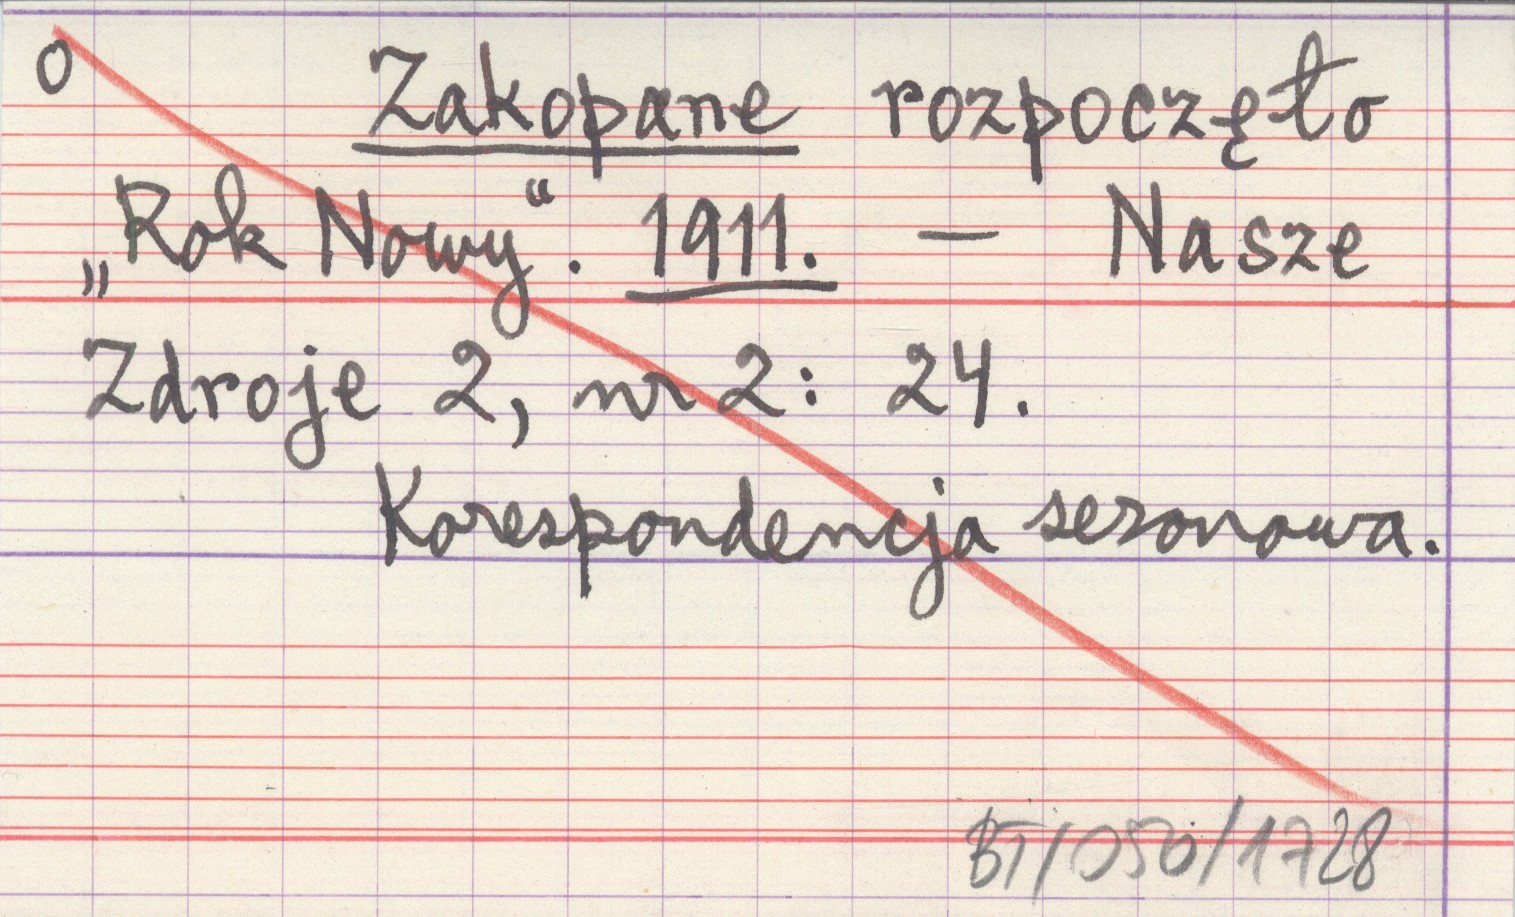 0
Zakopane rozpoczęło
„Rok Nowy“. 1911. — Nasze
Zdroje 2, nr 2: 24.
Korespondencja sezonowa.
BT/050/1728